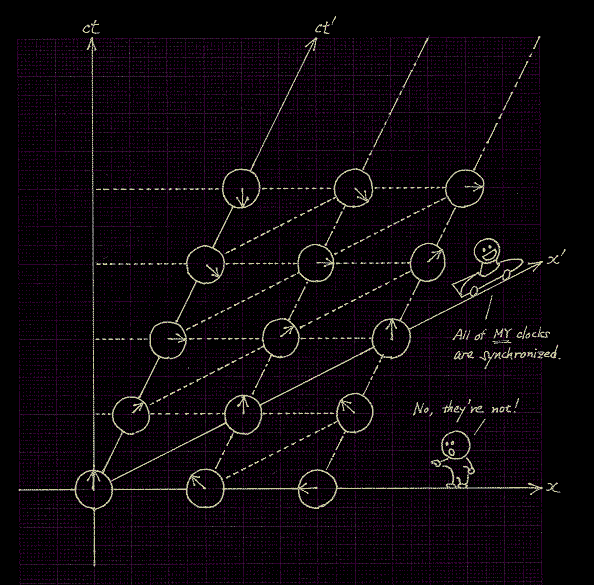 ct
ct'
x'
All of MY clocks
are synchronized.
No, they're not!
x